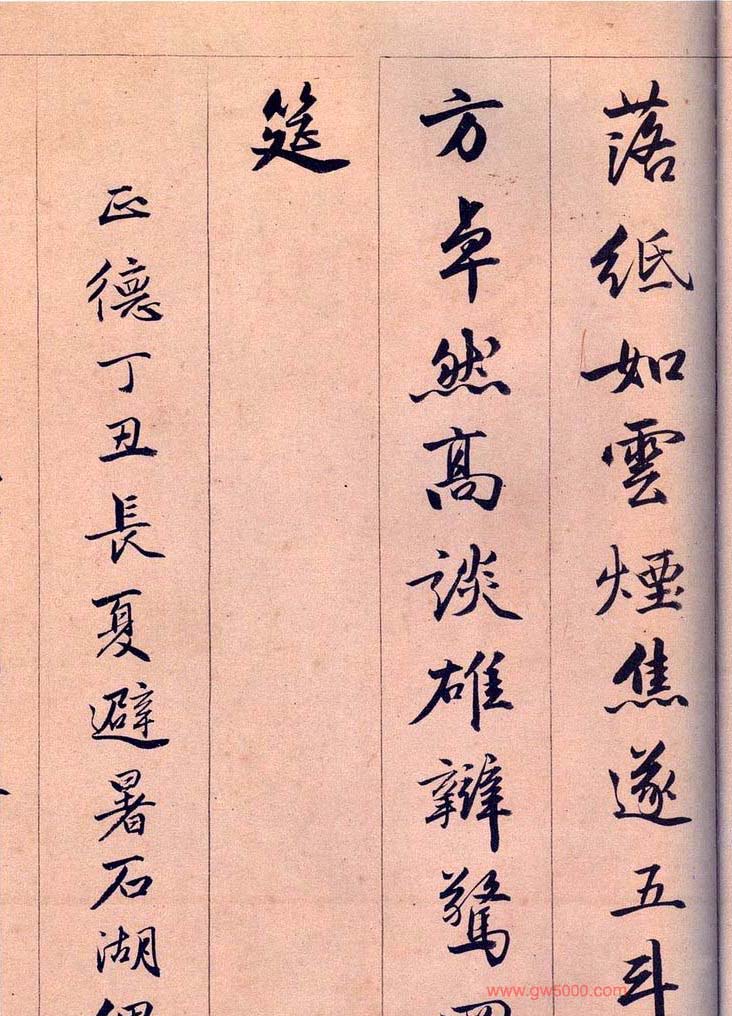 落紙如雲煙焦遂五斗
方卓然高談雄辯驚
筵
正德丁丑長夏避暑石湖
www.gw5000.com